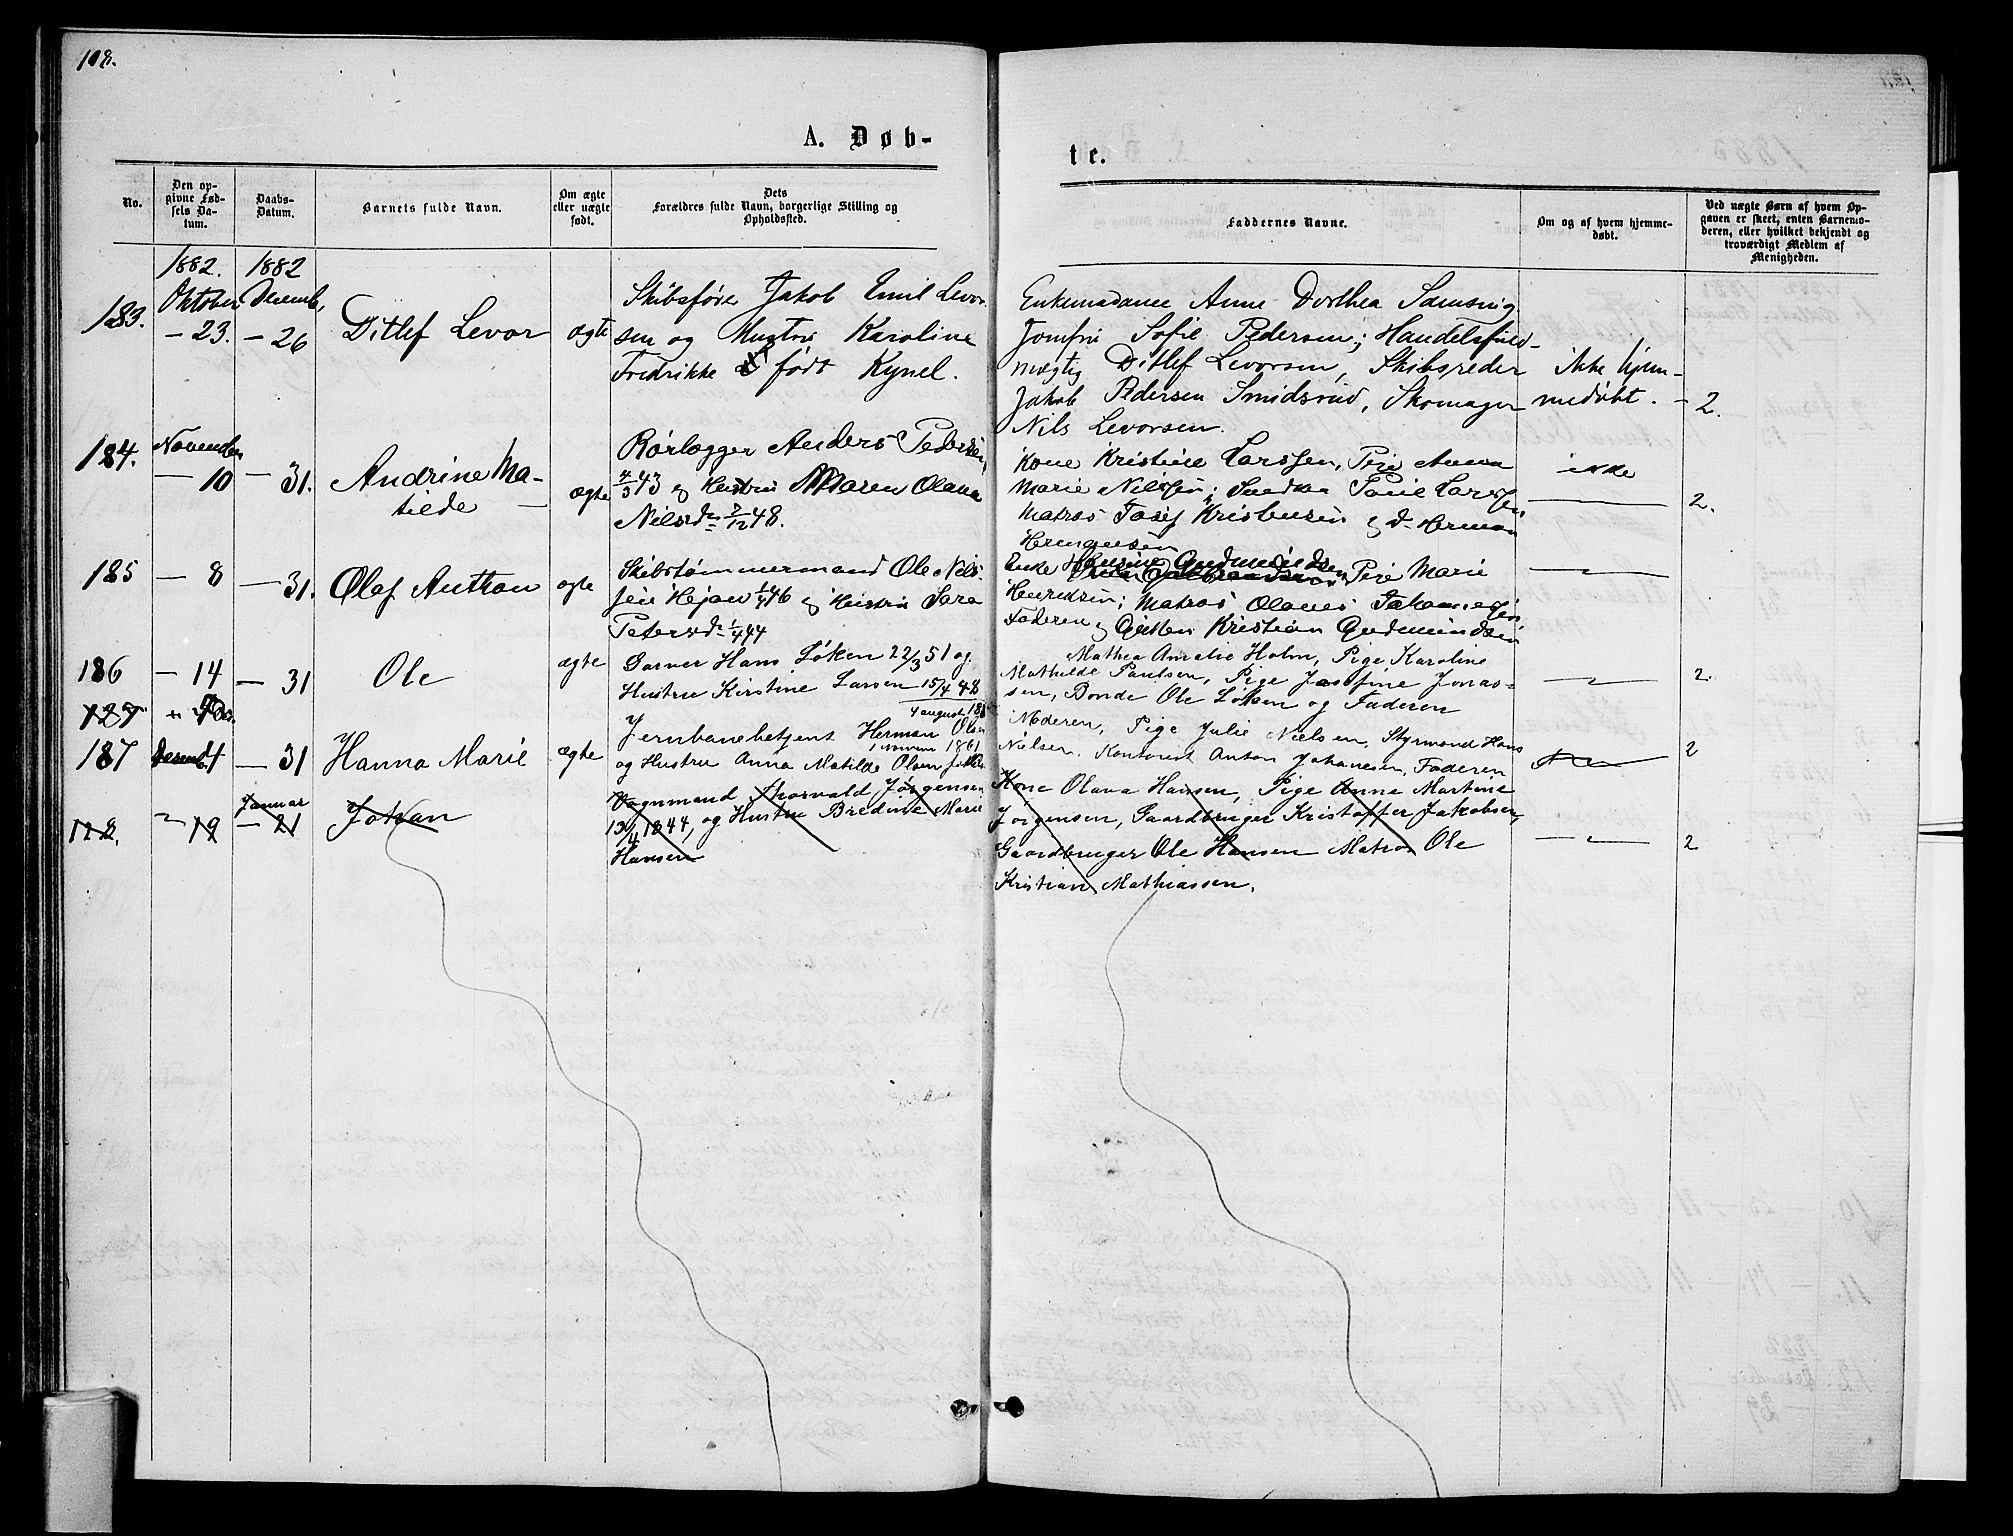 108.
A. Døb-
te.
No.
Den op-
givne Fød-
sels Da-
tum.
Daabs-
Datum.
Barnets fulde Navn.
Om ægte
eller uægte
født.
Dets
Forældres fulde Navn, borgerlige Stilling og
Opholdssted.
Faddernes Navne.
Om og af hvem hjemme-
døbt.
Ved uægte Børn af hvem Op-
gaven er skeet, enten Barnemo-
deren, eller hvilket bekjendt og
troværdigt Medlem af
Menigheden.
1882. 1882
183. Oktober - 23. Decemb, - 26 Ditlef Levor ægte
Skibsfører Jakob Emil Levor-
sen og Hustru Karoline
Fredrikke født Kynel.
Enkemadame Anne Dorthea Samsing
Jomfru Sofie Pedersen; Handelsfuld-
mægtig Ditlef Levorsen, Skibsreder
Jakob Pedersen Smidsrød, Skomager
Nils Levorsen.
ikke hjem-
medøbt. - 2.
184. November - 10 - 31. Andrine Ma-
tilde ægte
Rørlægger Anders Pedersen,
43 og Hustru Maren Olava
Nilsd. 48.
Kone Kristine Larssen, Pige Anna
Marie Nilssen; Larssen,
Matros Josef Kristensen og d. Herman
ikke
2.
185 - 8 - 31. Olaf Anthon ægte
Skibstømmermand Ole Nils-
sen 46 og Hustru Sara
Petersd. 44
Enke Hansine Gudmundsen Pige Marie
Henriksen; Matros Olaves Johannessen,
Faderen og Kristian Gudmundsen
186 - 14 - 31 Ole ægte
Garver Hans Løken 22/3 51 og
Hustru Kirstine Larsen 15/4 48
Mathea Amalie Holm, Pige Karoline
Mathilde Paulsen, Pige Josefine Jonas-
sen, Bonde Ole Løken og Faderen
2.
127
4 august 18
187 Decemb. 4 - 31 Hanna Marie ægte
Jernbanebetjent Herman Olsen
1861
og Hustru Anna Matilde Olsen
Moderen, Pige Julie Nielsen, Styrmand Hans
Nielsen, Kontorist Anton Johanesen, Faderen
2
128. " 19 Januar - 21 Johan
Vognmand Thorvald Jørgensen
13/4 1844, og Hustru Bredine Marie
Hansen
Kone Olava Hansen, Pige Anne Martine
Jørgensen, Gaardbruger Kristoffer Jakobsen,
Gaardbruger Ole Hansen Matros Ole
Kristian Mathiassen.
2